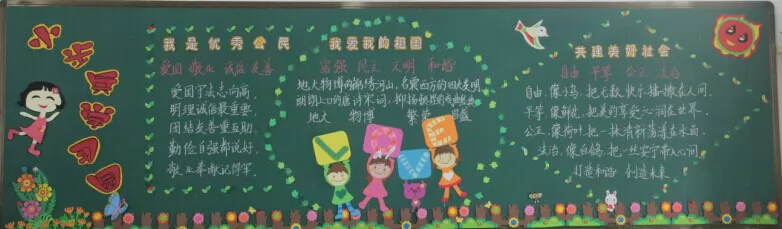 我是优秀公民
爱国 敬业 诚信 友善
爱国守法志向高,
明理诚信最重要,
团结友善重互助,
勤俭自强都说好,
敬业奉献记得牢。
我爱我的祖国
富强 民主 文明 和谐
地大物博的锦绣河山,名震西方的四大发明,
朗朗上口的唐诗宋词,抑扬顿挫的
地大 物博 繁荣 昌盛
LOVE
共建美好社会
自由 平等 公正 法治
自由,像小鸟,把无数快乐播撒在人间,
平等,像鲜花,把美的享受沁润在世界,
公正,像荷叶,把一抹清新荡漾在水面,
法治,像白鸽,把一丝安宁带入心间,
打造和谐 创造未来